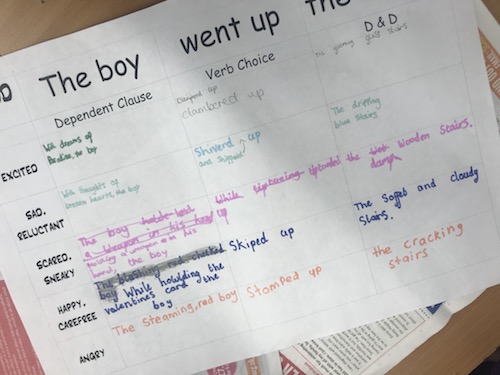 The boy
went up
the
Dependent Clause
Verb Choice
D & D
EXCITED
With dreams of
Paradise, the boy
clambered up
The gleaming gold stairs
SAD.
RELUCTANT
With thoughts of
broken hearts, the boy
Shiverd up
and Shipped
The dripping
blue stairs
SCARED.
SNEAKY
The boy
a weapon in his
up
While
the
Wooden Stairs.
weapon in his
hand, the boy
HAPPY.
CAREFREE
The blushing red cheeked
boy While howlding the
valentines card the
boy
Skiped up
The Soft and cloudy
Stairs.
ANGRY
The Steaming, red boy
Stomped up
the cracking
stairs